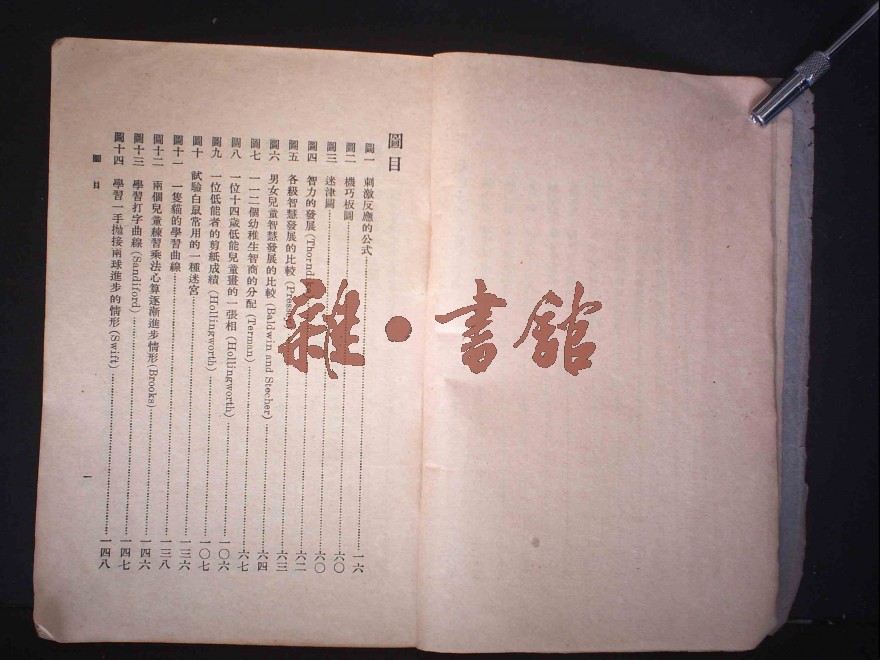 圖目
圖一 刺激反應的公式……一六
圖二 機巧板圖……六〇
圖三 迷津圖……六〇
圖四 智力的發展(Thorndike)……六二
圖五 各級智慧發展的比較(Pressey)……六三
圖六 男女兒童智慧發展的比較(Baldwin and Stecher)……六四
圖七 一一二個幼稚生智商的分配(Terman)……六七
圖八 一位十四歲低能兒童畫的一張相(Hollingworth)……一〇六
圖九 一位低能者的剪紙成績(Hollingworth)……一〇七
圖十 試驗白鼠常用的一種迷宮……一三六
圖十一 一隻貓的學習曲線……一三八
圖十二 兩個兒童練習乘法心算逐漸進步情形(Brooks)……一四六
圖十三 學習打字曲線(Sandiford)……一四七
圖十四 學習一手拋接兩球進步的情形(Swift)……一四八
圖目
一
雜·書館